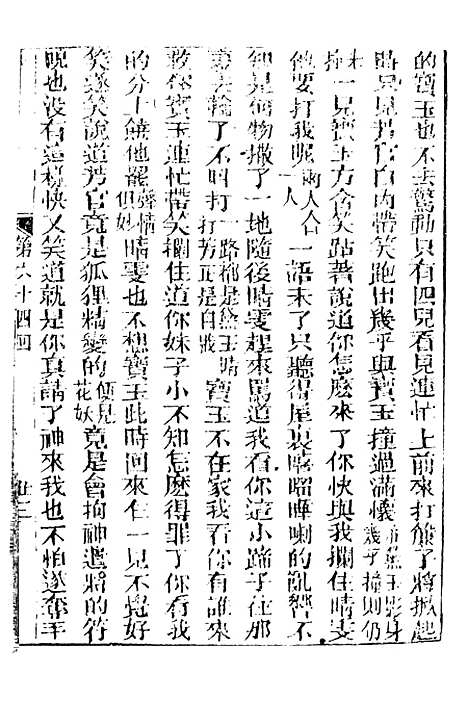 的寶玉也不去驚動只有四兒看見連忙上前來打簾子將掀起
時只見芳官自內帶笑跑出幾乎與寶玉撞過滿懷幾乎撞則仍身
一見寶玉方含笑站著說道你怎麽來了你快與我攔住晴雯
他要打我呢兩人人口一人一語未了只聽得屋裏嘻嚁嘩喇的亂響不
知是何物撒了一地隨後晴雯趕來罵道我看你這小蹄子往那
裏去輸了不叫打一路打芳正是自戕寶玉不在家我看你有誰來
救你寶玉連忙帶笑攔住道你妹子小不知怎麽得罪了你看我
的分上饒他罷聲情俱妙晴雯也不想寶玉此時回來乍一見不覺好
笑遂笑說道芳官竟是狐狸精變的便見花妖竟是會拘神遣將的符
呪也没有這樣快又笑道就是你真請了神來我也不怕遂奪手
第六十四回
廿三